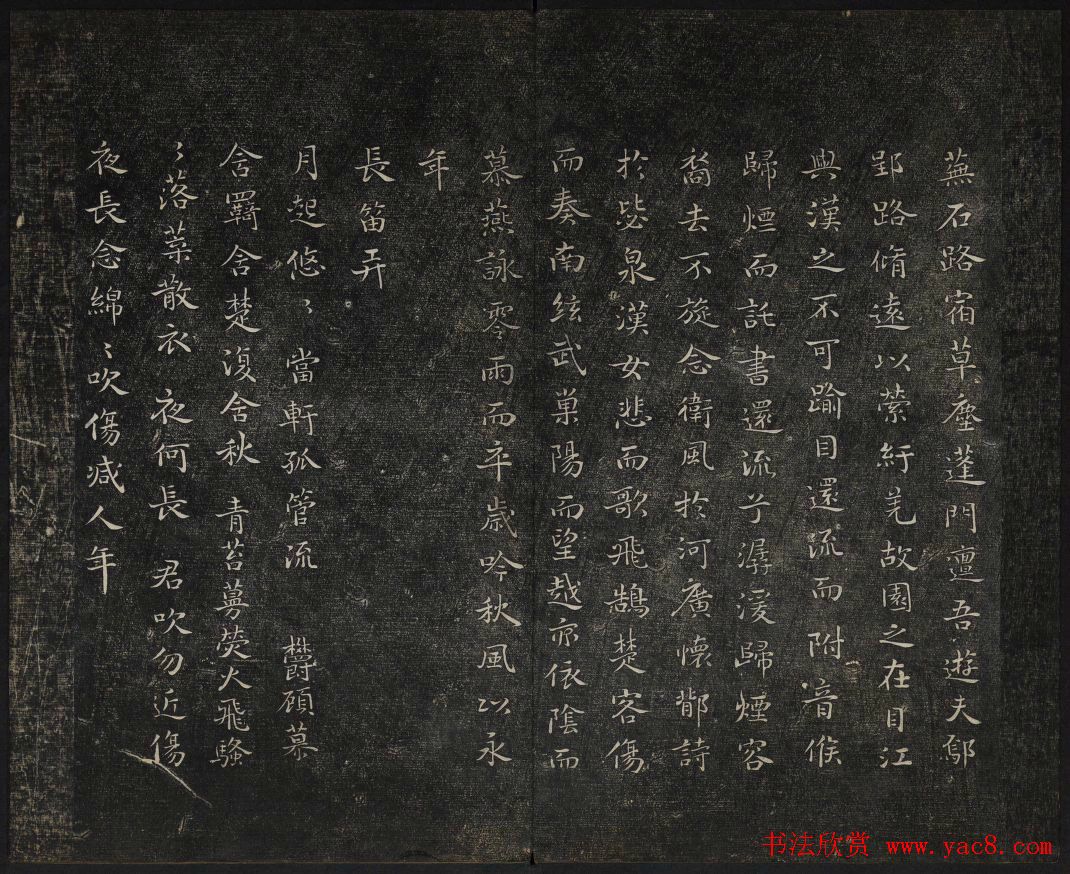 蕪石路宿草塵蓬門邅吾遊夫鄢
郢路脩遠以縈紆羌故園之在目江
與漢之不可踰目還流而附音候
歸煙而託書還流兮潺湲歸煙容
裔去不旋念衛風於河廣懷鄁詩
於毖泉漢女悲而歌飛鵠楚客傷
而奏南絃武巢陽而望越亦依陰而
慕燕詠零雨而卒歲吟秋風以永
年
長笛弄
月起悠〻當軒孤管流 欝顧慕
含羈含楚復含秋 青苔蔓熒火飛騷
〻落葉散衣 夜何長 君吹勿近傷
夜長念綿〻吹傷減人年
书法欣赏 www.yac8.com